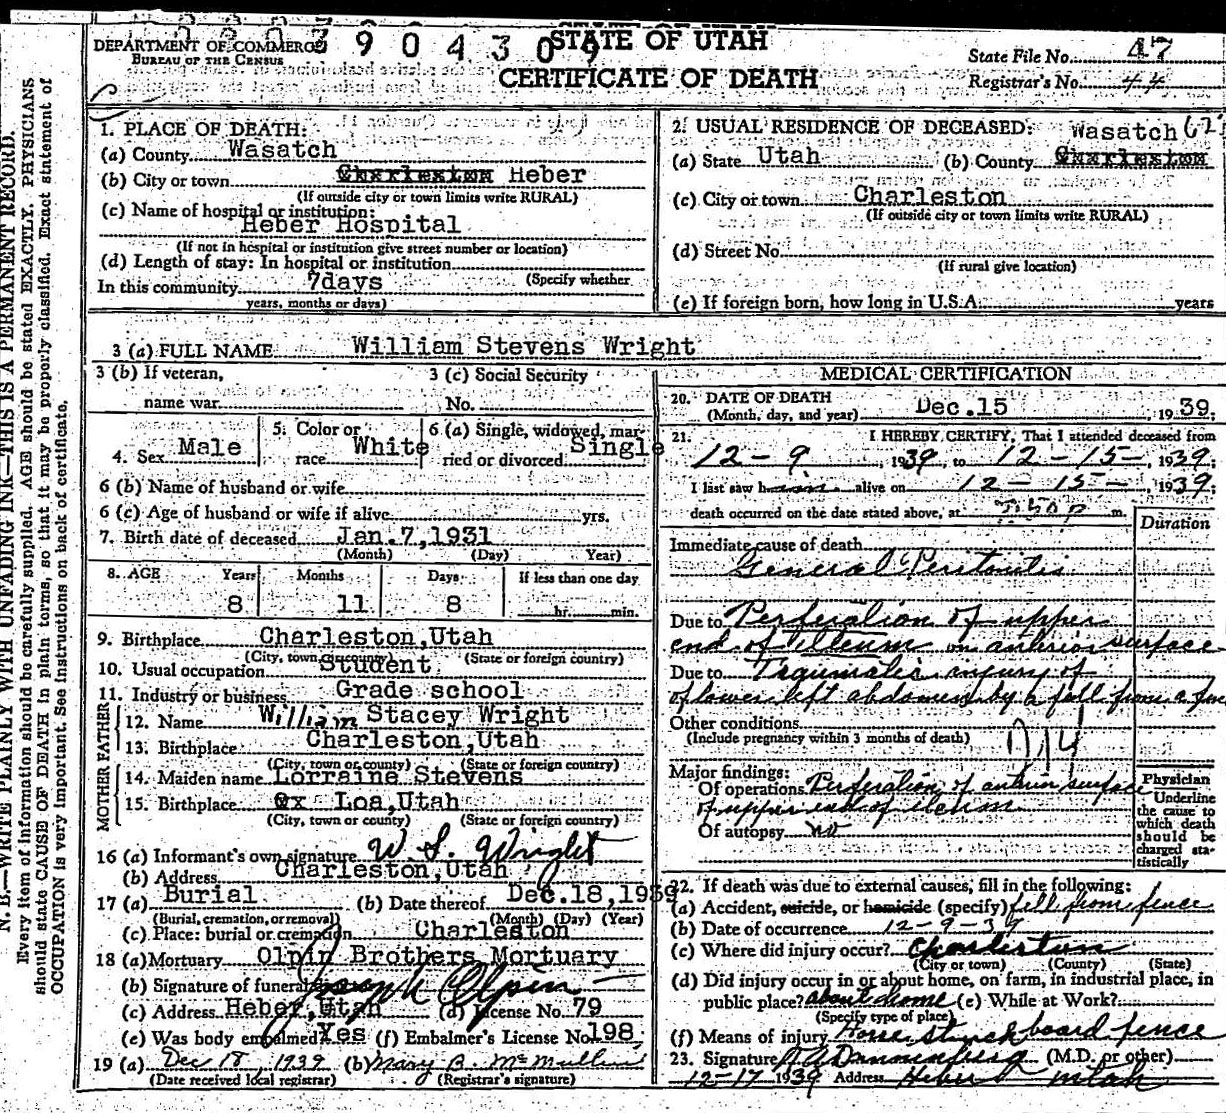 N. B.—WRITE PLAINLY WITH UNFADING INK—THIS IS A PERMANENT RECORD.
Every item of information should be carefully supplied. AGE should be stated EXACTLY. PHYSICIANS
should state CAUSE OF DEATH in plain terms, so that it may be properly classified. Exact statement of
OCCUPATION is very important. See instructions on back of certificate.
DEPARTMENT OF COMMERCE
BUREAU OF THE CENSUS
3904309
STATE OF UTAH
CERTIFICATE OF DEATH
State File No. 47
Registrar's No. 44
1. PLACE OF DEATH:
(a) County Wasatch
(b) City or town Charleston Heber
(If outside city or town limits write RURAL)
(c) Name of hospital or institution:
Heber Hospital
(If not in hospital or institution give street number or location)
(d) Length of stay: In hospital or institution
(Specify whether
In this community 7days
years, months or days)
2. USUAL RESIDENCE OF DECEASED:
Wasatch
(a) State Utah (b) County Charleston
(c) City or town Charleston
(If outside city or town limits write RURAL)
(d) Street No.
(If rural give location)
(e) If foreign born, how long in U.S.A. years
3 (a) FULL NAME William Stevens Wright
3 (b) If veteran,
name war
3 (c) Social Security
No.
4. Sex Male
5. Color or
race White
6 (a) Single, widowed, mar-
ried or divorced Single
6 (b) Name of husband or wife
6 (c) Age of husband or wife if alive yrs.
7. Birth date of deceased Jan.7,1931
(Month) (Day) Year)
8. AGE Years Months Days If less than one day
8 11 8 hr. min.
9. Birthplace Charleston,Utah
(City, town or county) (State or foreign country)
10. Usual occupation Student
11. Industry or business Grade school
FATHER
12. Name William Stacey Wright
13. Birthplace Charleston,Utah
(City, town or county) (State or foreign country)
MOTHER
14. Maiden name Lorraine Stevens
15. Birthplace Loa,Utah
(City, town or county) (State or foreign country)
16 (a) Informant's own signature W. S. Wright
(b) Address Charleston,Utah
17 (a) Burial (b) Date thereof Dec.18,1939
(Burial, cremation, or removal) (Month) (Day) (Year)
(c) Place: burial or cremation Charleston
18 (a) Mortuary Olpin Brothers Mortuary
(b) Signature of funeral Joseph Olpin
(c) Address Heber,Utah (d) License No. 79
(e) Was body embalmed Yes (f) Embalmer's License No. 198
19 (a) Dec 18, 1939 (b) Mary B. McMullin
(Date received local registrar) (Registrar's signature)
MEDICAL CERTIFICATION
20. DATE OF DEATH
(Month, day, and year) Dec.15 1939;
21. I HEREBY CERTIFY, That I attended deceased from
12-9, 1939, to 12-15-, 1939;
I last saw him alive on 12-15-, 1939;
death occurred on the date stated above, at m.
Duration
Immediate cause of death
General Peritonitis
Due to Perforation of upper
end of Illeum on anterior surface
Due to injury of
of lower left abdomen by a fall from a
Other conditions
(Include pregnancy within 3 months of death)
Major findings:
Of operations Perforation of anterior surface
of upper end of ileum
Of autopsy no
Physician
Underline
the cause to
which death
should be
charged sta-
tistically
22. If death was due to external causes, fill in the following:
(a) Accident, suicide, or homicide (specify) fell from fence
(b) Date of occurrence 12-9-39
(c) Where did injury occur? Charleston
(City or town) (County) (State)
(d) Did injury occur in or about home, on farm, in industrial place, in
public place? about home (e) While at Work?
(Specify type of place)
(f) Means of injury Horse struck board fence
23. Signature (M.D. or other)
12-17 1939 Address Heber Utah